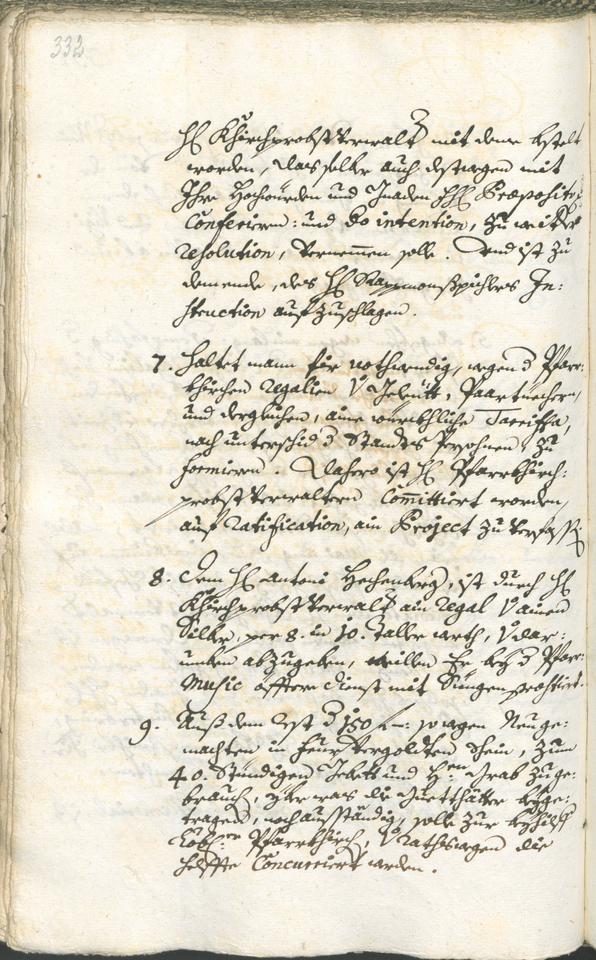 332
H: Khirchprobst Verwalter mit deme bestelt
worden, das selber auch destwegen mit
Ihro Hochwürden und Gnaden HH: Præposito
Conferieren: und Do intention, zu weitter
resolution, vernemmen solle. Und ist zu
demende, des H:
struction aufzuschlagen.
7. Haltet mann für nothwendig, wegen d Pfarr-
khirchen Regalien V Geleütt, Paartuecher,
und dergleichen, aine württhliche Tariffa,
nach unterschid d Standts Persohnen, zu
formieren. Dahero ist H: Pfarrkhirch:
probst Verwaltern Committiert worden,
auf Ratification, ain Project zu verfassen
8. Dem H: Antoni Hechenberg, ist durch H:
Khirchprobst Verwalter ain Regal V ainen
Silber, per 8. in 10. Taller werth, V dar:
umben abzugeben, weillen Er bey d Pfarr
Music öfftere dienst mit Singen præstiert.
9. Auß dem Rest d 150 f: so wegen Neuge:
machten in feur vergolden Schein, zum
40. Stündigen Gebett und H: Grab zuge:
brauch, yber was die Guetthätter beyge:
tragen, noch ausständig, solle zur beyhilff
Löbl: Pfarrkhirch, V rathswegen die
helffte Concurriert werden.